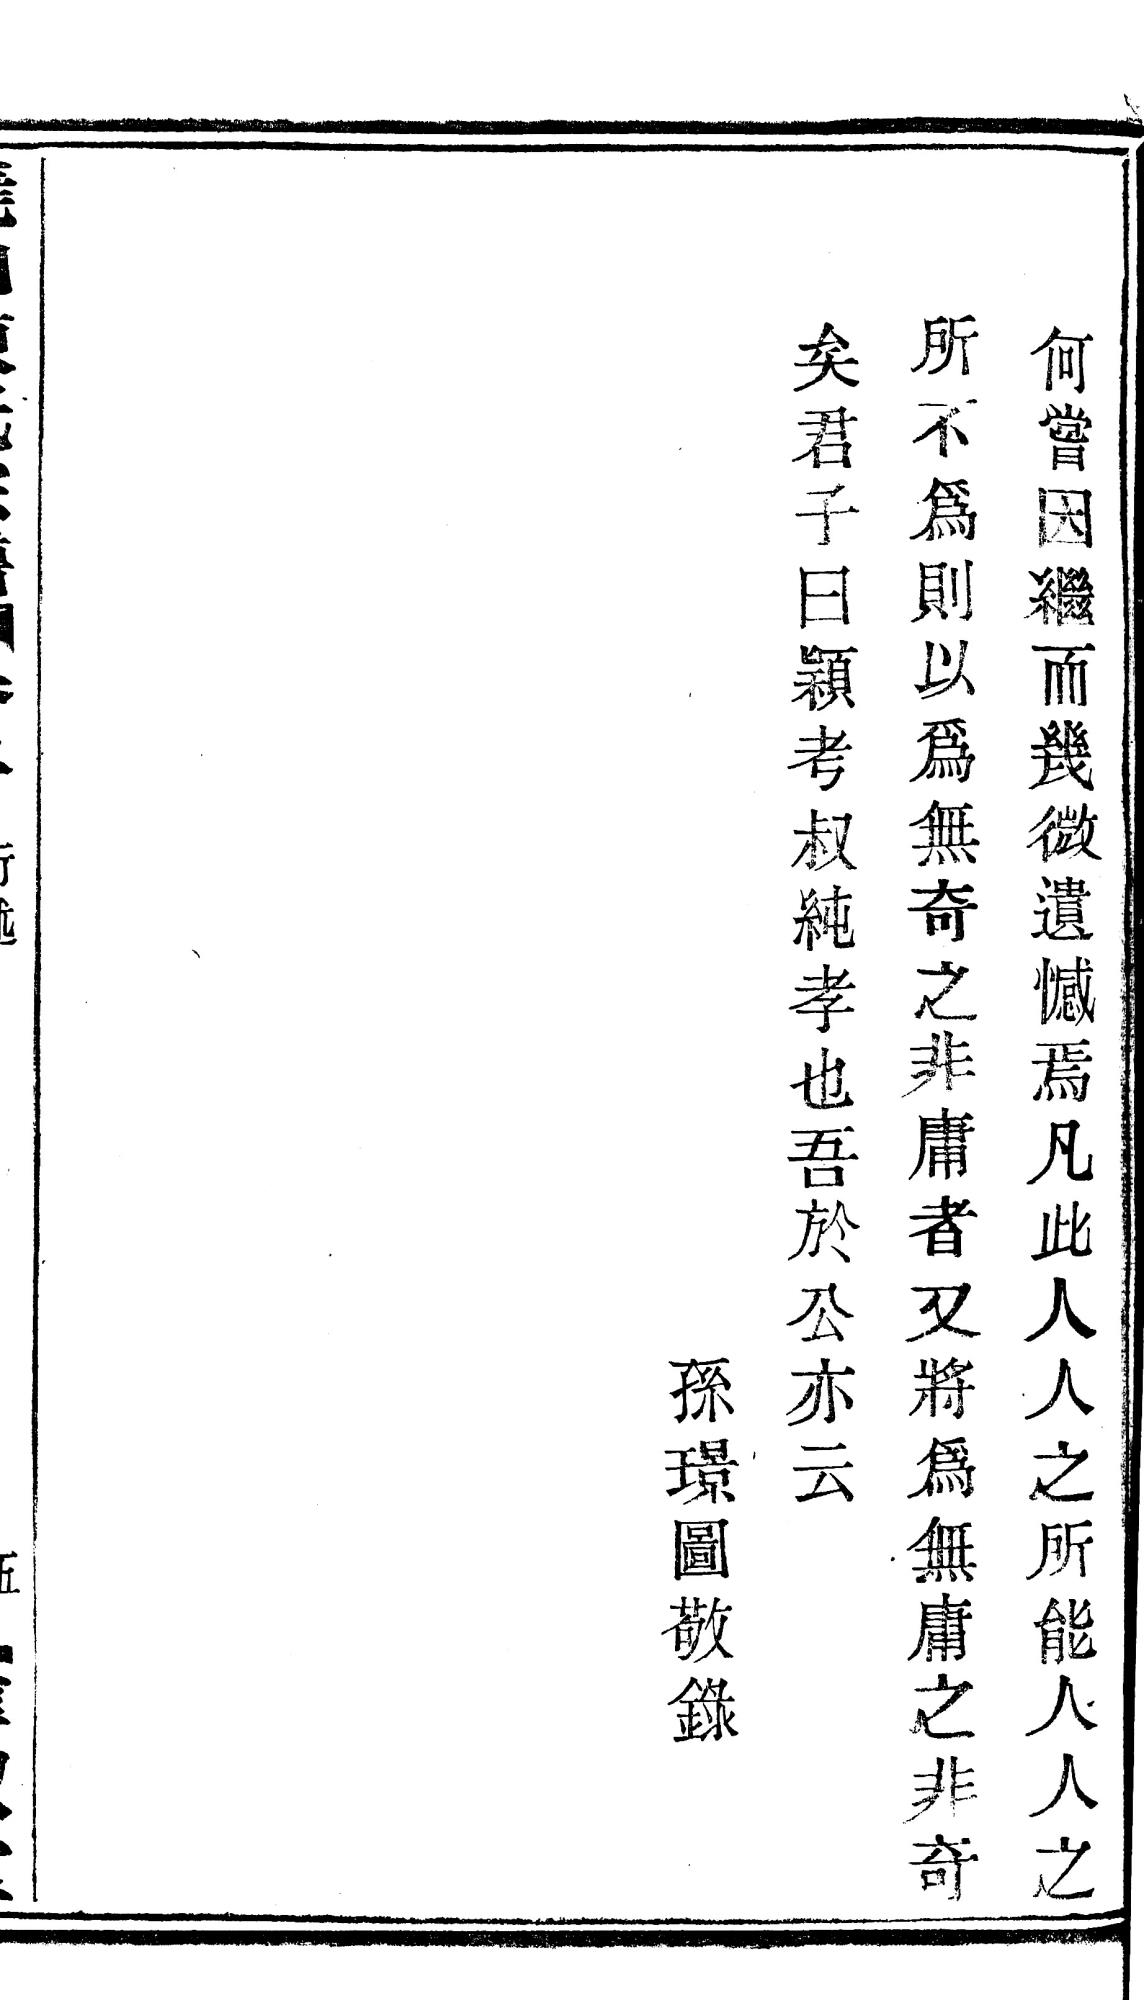 何嘗因繼而幾微遺憾焉凡此人人之所能人人之
所不爲則以爲無奇之非庸者又將爲無庸之非奇
矣君子曰潁考叔純孝也吾於公亦云
孫璟圖敬錄
行述
五